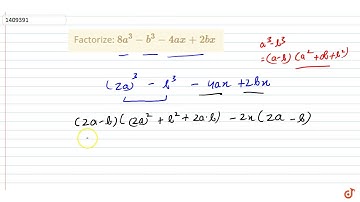 1409391
Factorize: 8a³ − b³ − 4ax + 2bx
a³-b³
=(a-b)(a²+ab+b²)
(2a)³ - b³ - 4ax +2bx
(2a-b)((2a)²+b²+2a·b) -2x(2a-b)